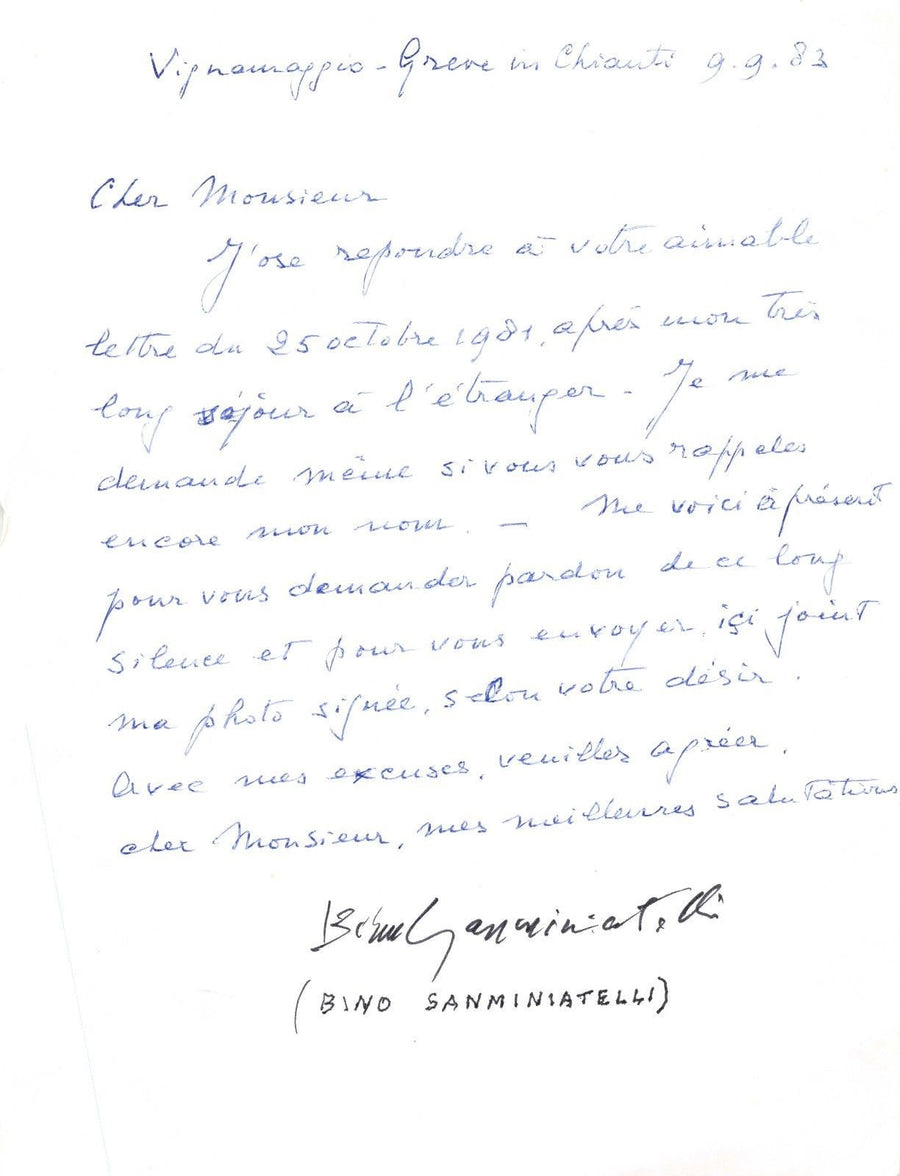 Vignamaggio - Greve in Chianti 9.9.83
Cher Monsieur
J'ose repondre à votre aimable
lettre du 25 octobre 1981, après mon très
long séjour à l'étranger - Je me
demande même si vous vous rappeles
encore mon nom. - Me voici à présent
pour vous demander pardon de ce long
silence et pour vous envoyer, içi joint
ma photo signée, selon votre désir.
Avec mes excuses, veuilles agréer,
cher Monsieur, mes meilleures salutations
Bino Sanminiatelli
(BINO SANMINIATELLI)